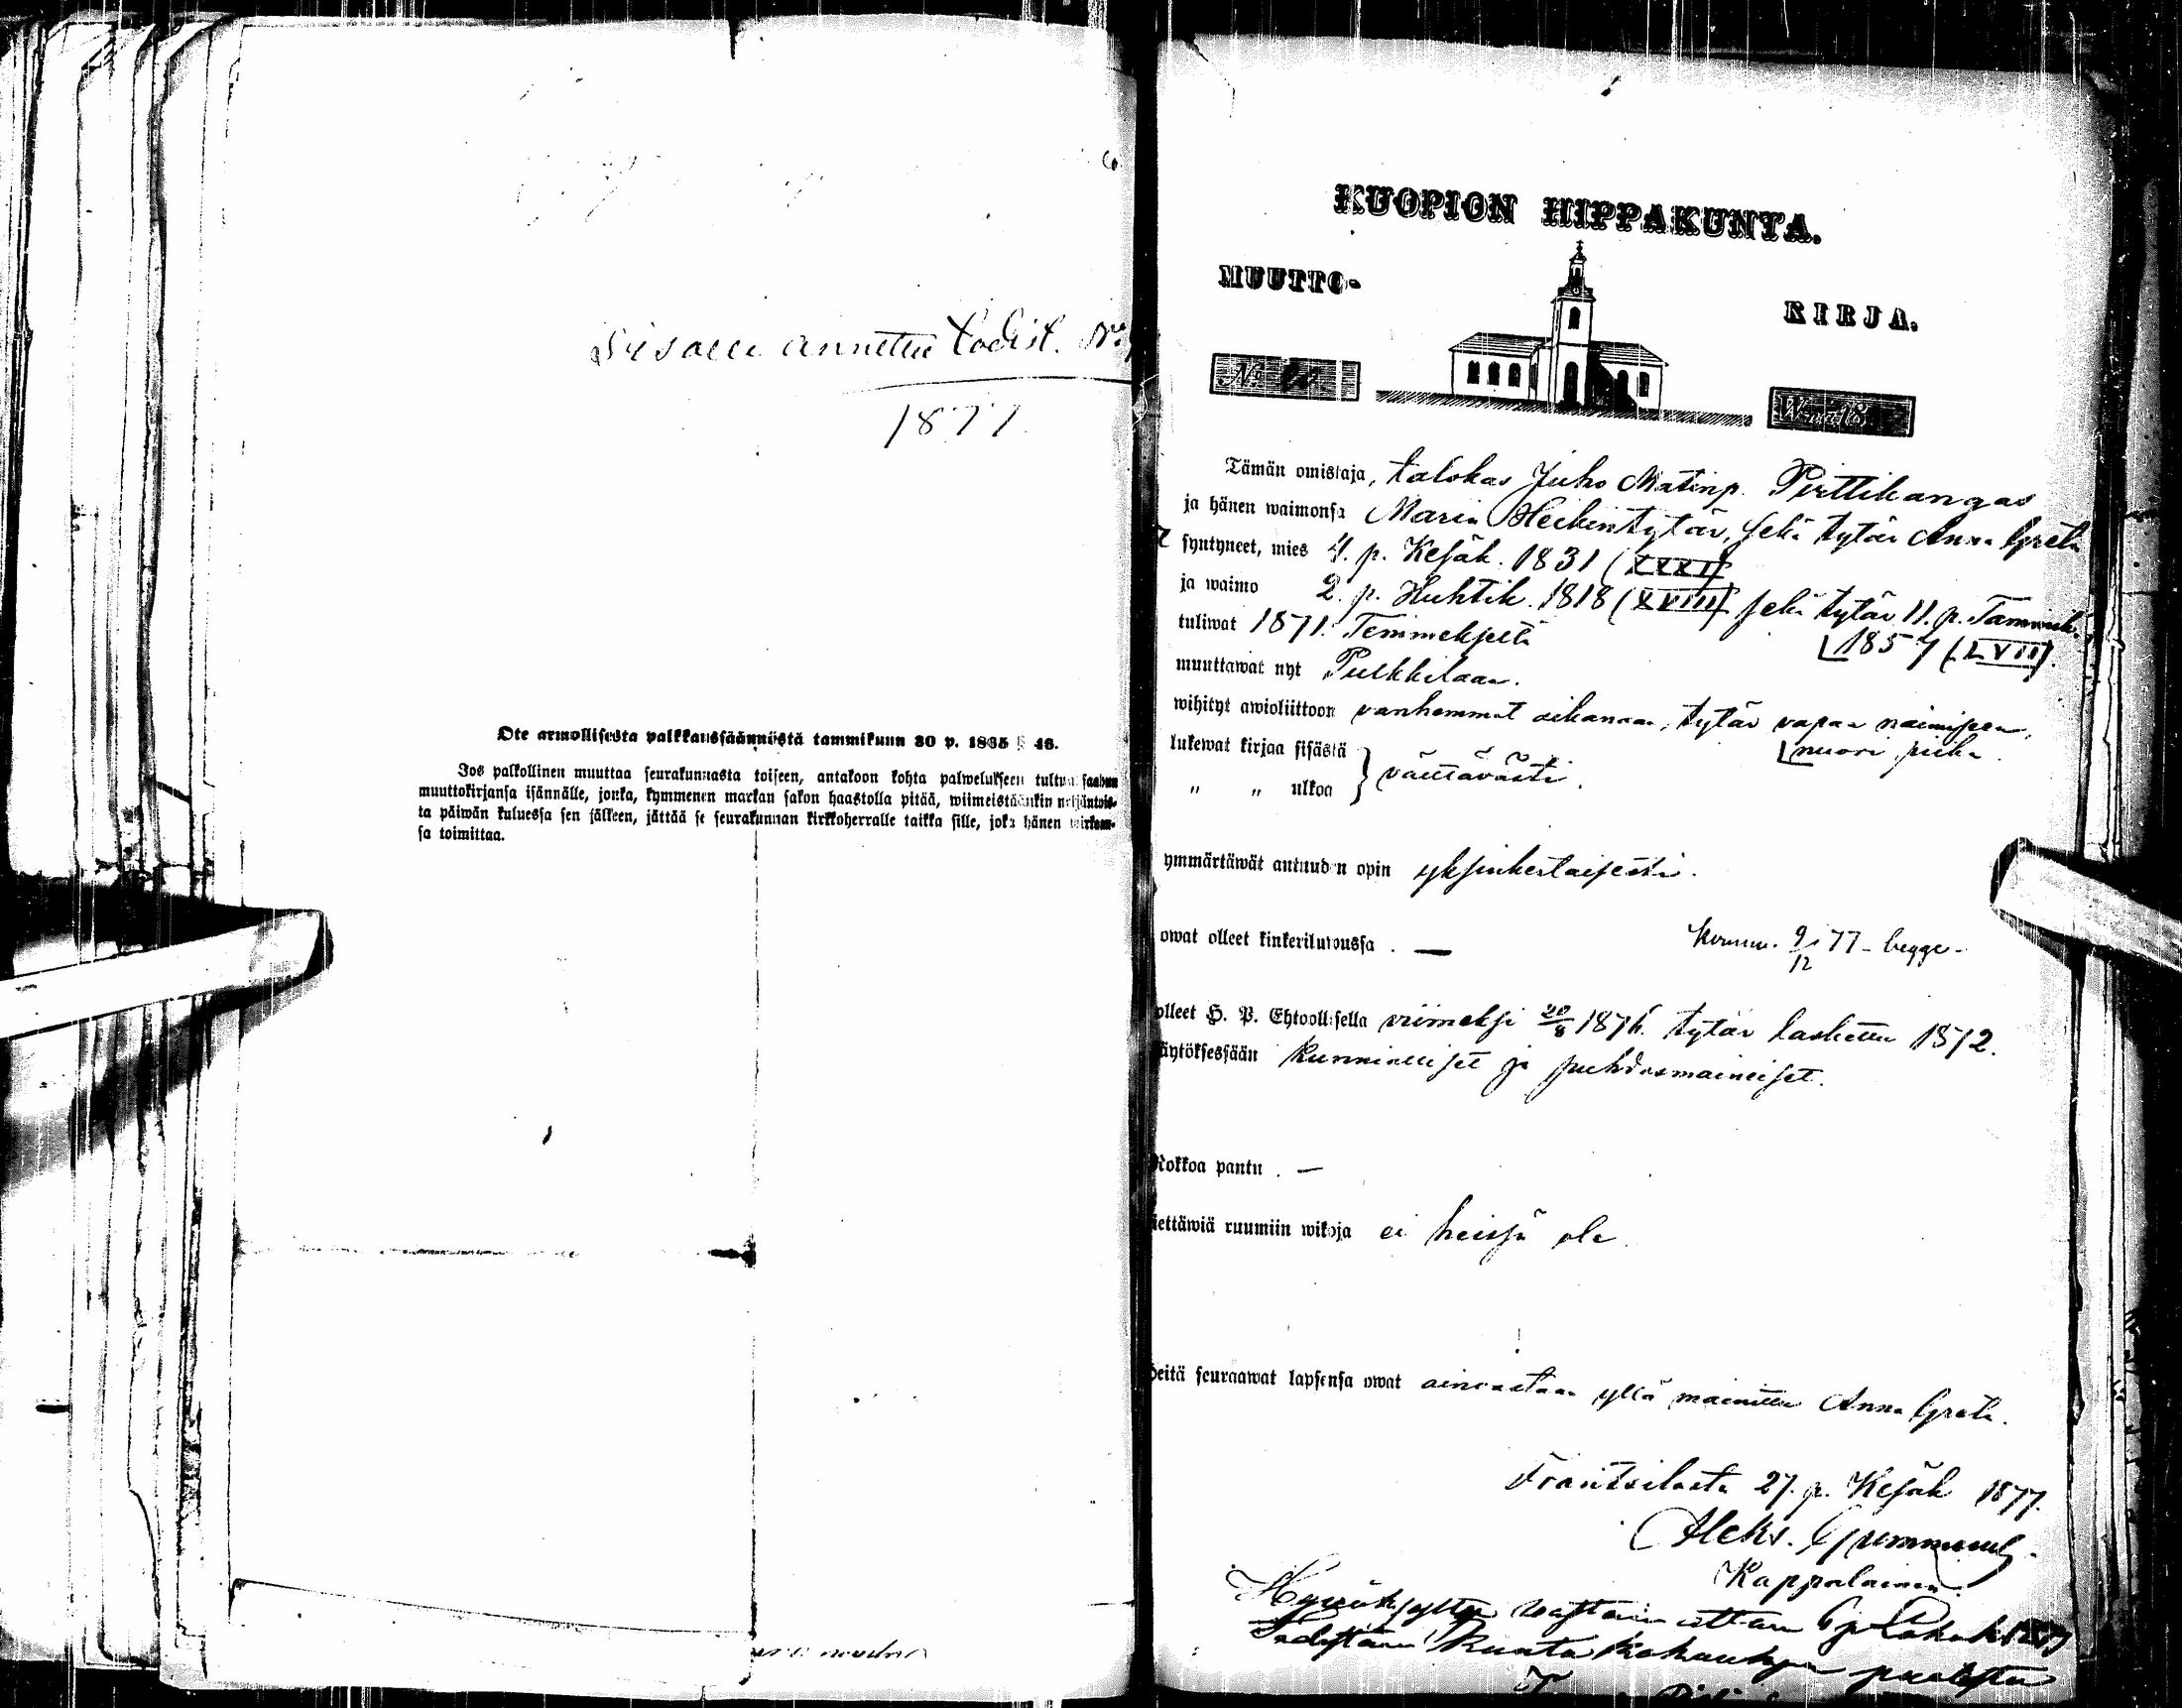 Sisälle annettu todist. No
1877
Ote armollisesta palkkaussäännöstä tammikuun 30 p. 1865 § 46.
Jos palkollinen muuttaa seurakunnasta toiseen, antakoon kohta palwelukseen tultua saadun
muuttokirjansa isännälle, jonka, kymmenen markan sakon haastolla pitää, wiimeistäänkin neljäntois-
ta päiwän kuluessa sen jälkeen, jättää se seurakunnan kirkkoherralle taikka sille, joka hänen wirkaan-
sa toimittaa.
KUOPION HIPPAKUNTA.
MUUTTO- KIRJA.
No 20 W:na 18
Tämän omistaja, talokas Juho Matinp. Pirttikangas
ja hänen waimonsa Maria Heikintytär, sekä tytär Anna Greta
syntyneet, mies 4. p. Kesäk. 1831 (XXXI)
ja waimo 2. p. Huhtik. 1818 (XVIII) sekä tytär 11. p. Tammik.
1857 (LVII).
tuliwat 1871. Temmekseltä
muuttawat nyt Pulkkilaan.
wihityt awioliittoon vanhemmat aikanaan, tytär vapaa naimiseen,
nuori piika.
lukewat kirjaa sisästä
" " ulkoa } välttävästi.
ymmärtäwät autuuden opin yksinkertaisesti.
owat olleet kinkerilukoussa . —
Komm. 9/12 77 - begge -
olleet H. P. Ehtoollisella viimeksi 20/8 1876. tytär laskettu 1872.
äytöksessään kunnialliset ja puhdasmaineiset.
Rokkoa pantu . —
iettäwiä ruumiin wikoja ei heissä ole
heitä seuraawat lapsensa owat ainoastaan yllä mainittu Anna Greta.
Frantsilasta 27. p. Kesäk 1877.
Aleks.
Kappalainen.
Hyväksyttyy vastaan ottaa
Todistaa Kunta kokouksen puolesta